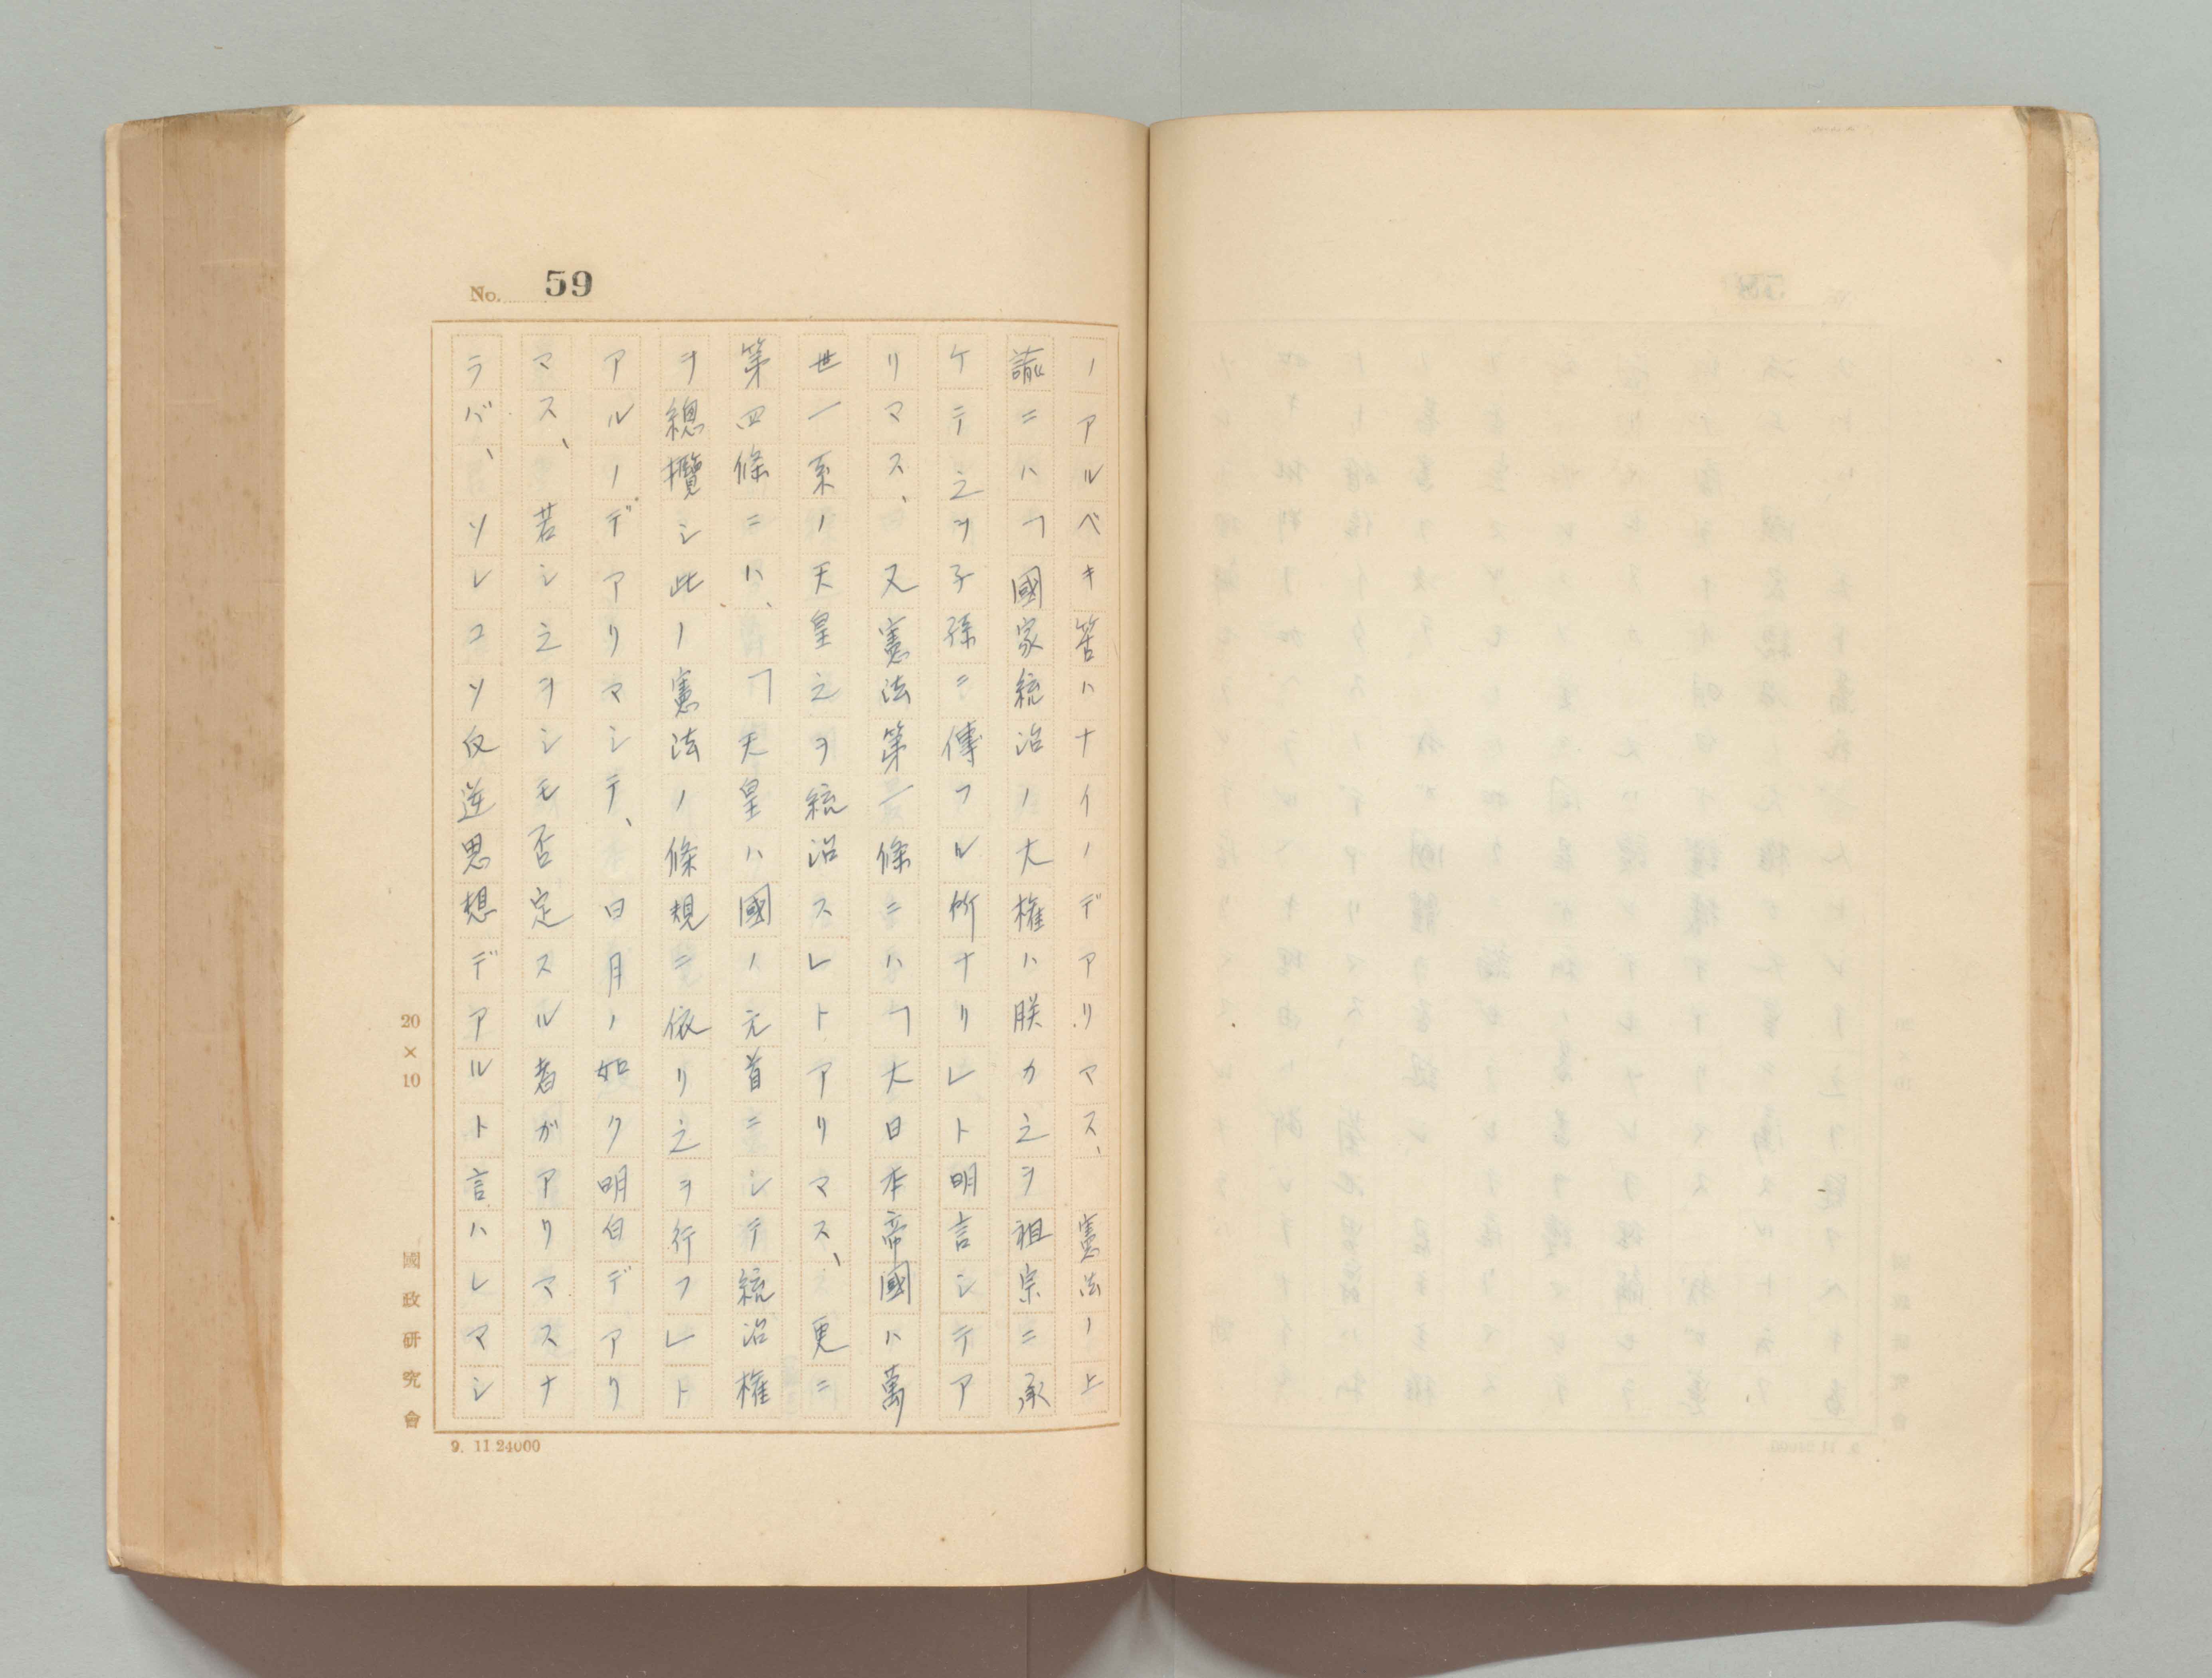 No. 59
ノアルベキ筈ハナイノデアリマス、憲法ノ上
諭ニハ「國家統治ノ大権ハ朕カ之ヲ祖宗ニ承
ケテ之ヲ子孫ニ傳フル所ナリレト明言シテア
リマス、又憲法第一條ニハ「大日本帝國ハ萬
世一系ノ天皇之ヲ統治スレトアリマス、更ニ
第四條ニハ、「天皇ハ國ノ元首ニシテ統治権
ヲ總攬シ此ノ憲法ノ條規ニ依リ之ヲ行フレト
アルノデアリマシテ、日月ノ如ク明白デアリ
マス、若シ之ヲシモ否定スル者ガアリマスナ
ラバ、ソレコソ反逆思想デアルト言ハレマシ
20×10
國政研究會
9. 11.24000